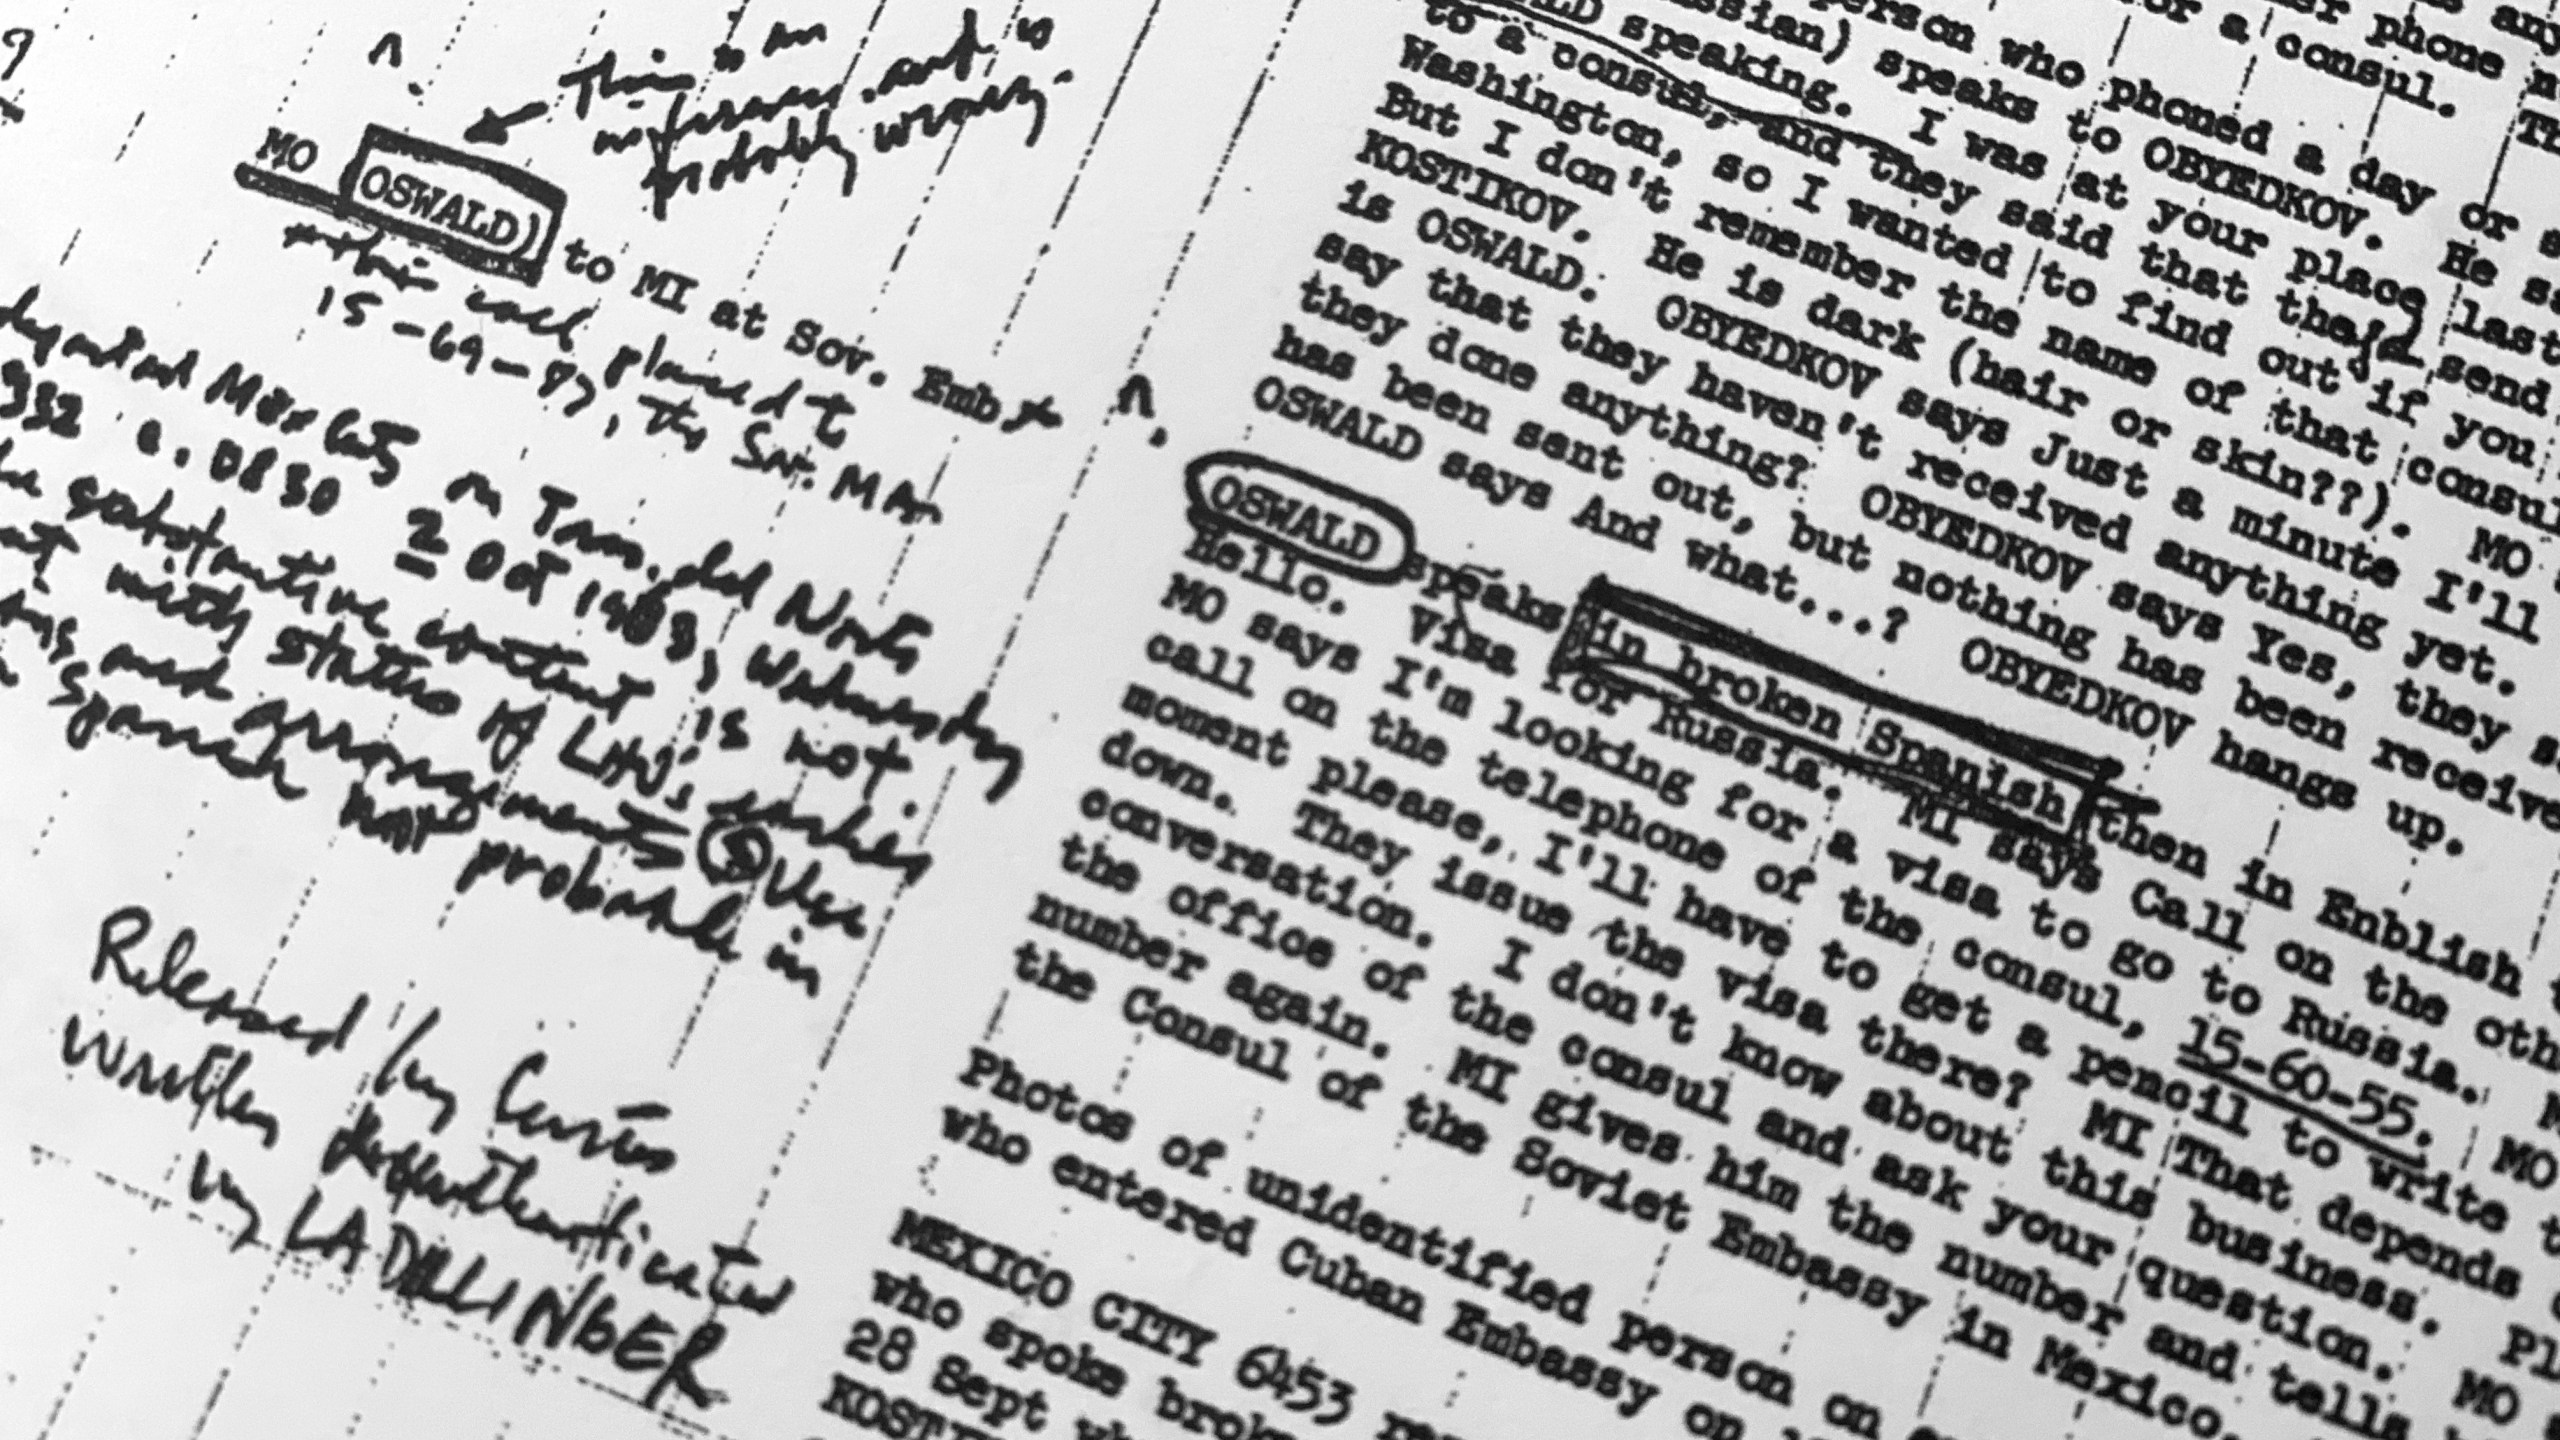 This is an
inference and is
probably wrong.
MO (OSWALD) to MI at Sov. Emb
this call placed to
15-69-87, the Sov. MA.
departed Mex City on Trans. del Norte
332 0830 2 Oct 1963, Wednesday
substantive content is not.
with status of LHO's wishes
and arrangements ③ Use
Spanish not probable in
Released by Curtis
Written deauthenticated
by LADILLINGER
er phone n
or a consul. Th
person who phoned a day or s
ssian) speaks to OBYEDKOV. He sa
LD speaking. I was at your place last
to a consul, and they said that they'd send
Washington, so I wanted to find out if you
But I don't remember the name of that consul
KOSTIKOV. He is dark (hair or skin??). MO
is OSWALD. OBYEDKOV says Just a minute I'll
say that they haven't received anything yet.
they done anything? OBYEDKOV says Yes, they s
has been sent out, but nothing has been receive
OSWALD says And what...? OBYEDKOV hangs up.
OSWALD speaks in broken Spanish then in Enblish t
Hello. Visa for Russia. MI says Call on the oth
MO says I'm looking for a visa to go to Russia. M
call on the telephone of the consul, 15-60-55. MO
moment please, I'll have to get a pencil to write t
down. They issue the visa there? MI That depends
conversation. I don't know about this business. Pl
the office of the consul and ask your question. MO
number again. MI gives him the number and tells h
the Consul of the Soviet Embassy in Mexico.
Photos of unidentified person on
who entered Cuban Embassy on
MEXICO CITY 6453 re
who spoke brok
28 Sept wh
KOST